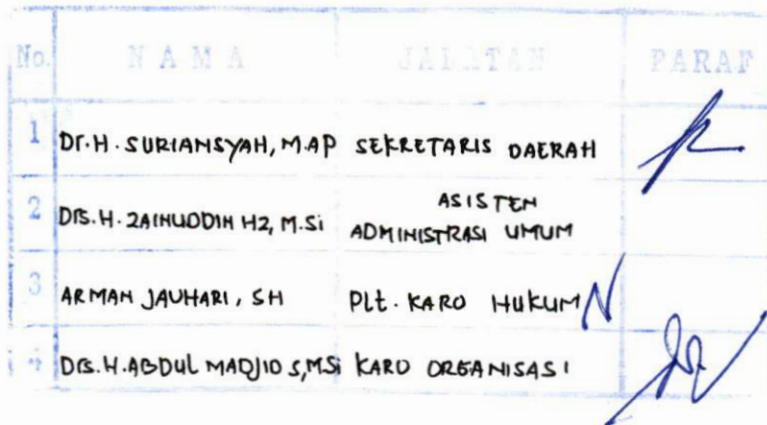 No. NAMA JABATAN PARAF
1 Dr. H. SURIANSYAH, M.AP SEKRETARIS DAERAH
2 Drs. H. ZAINUDDIN HZ, M.Si ASISTEN ADMINISTRASI UMUM
3 ARMAN JAUHARI, SH Plt. KARO HUKUM
4 Drs. H. ABDUL MADJID S, MSi KARO ORGANISASI